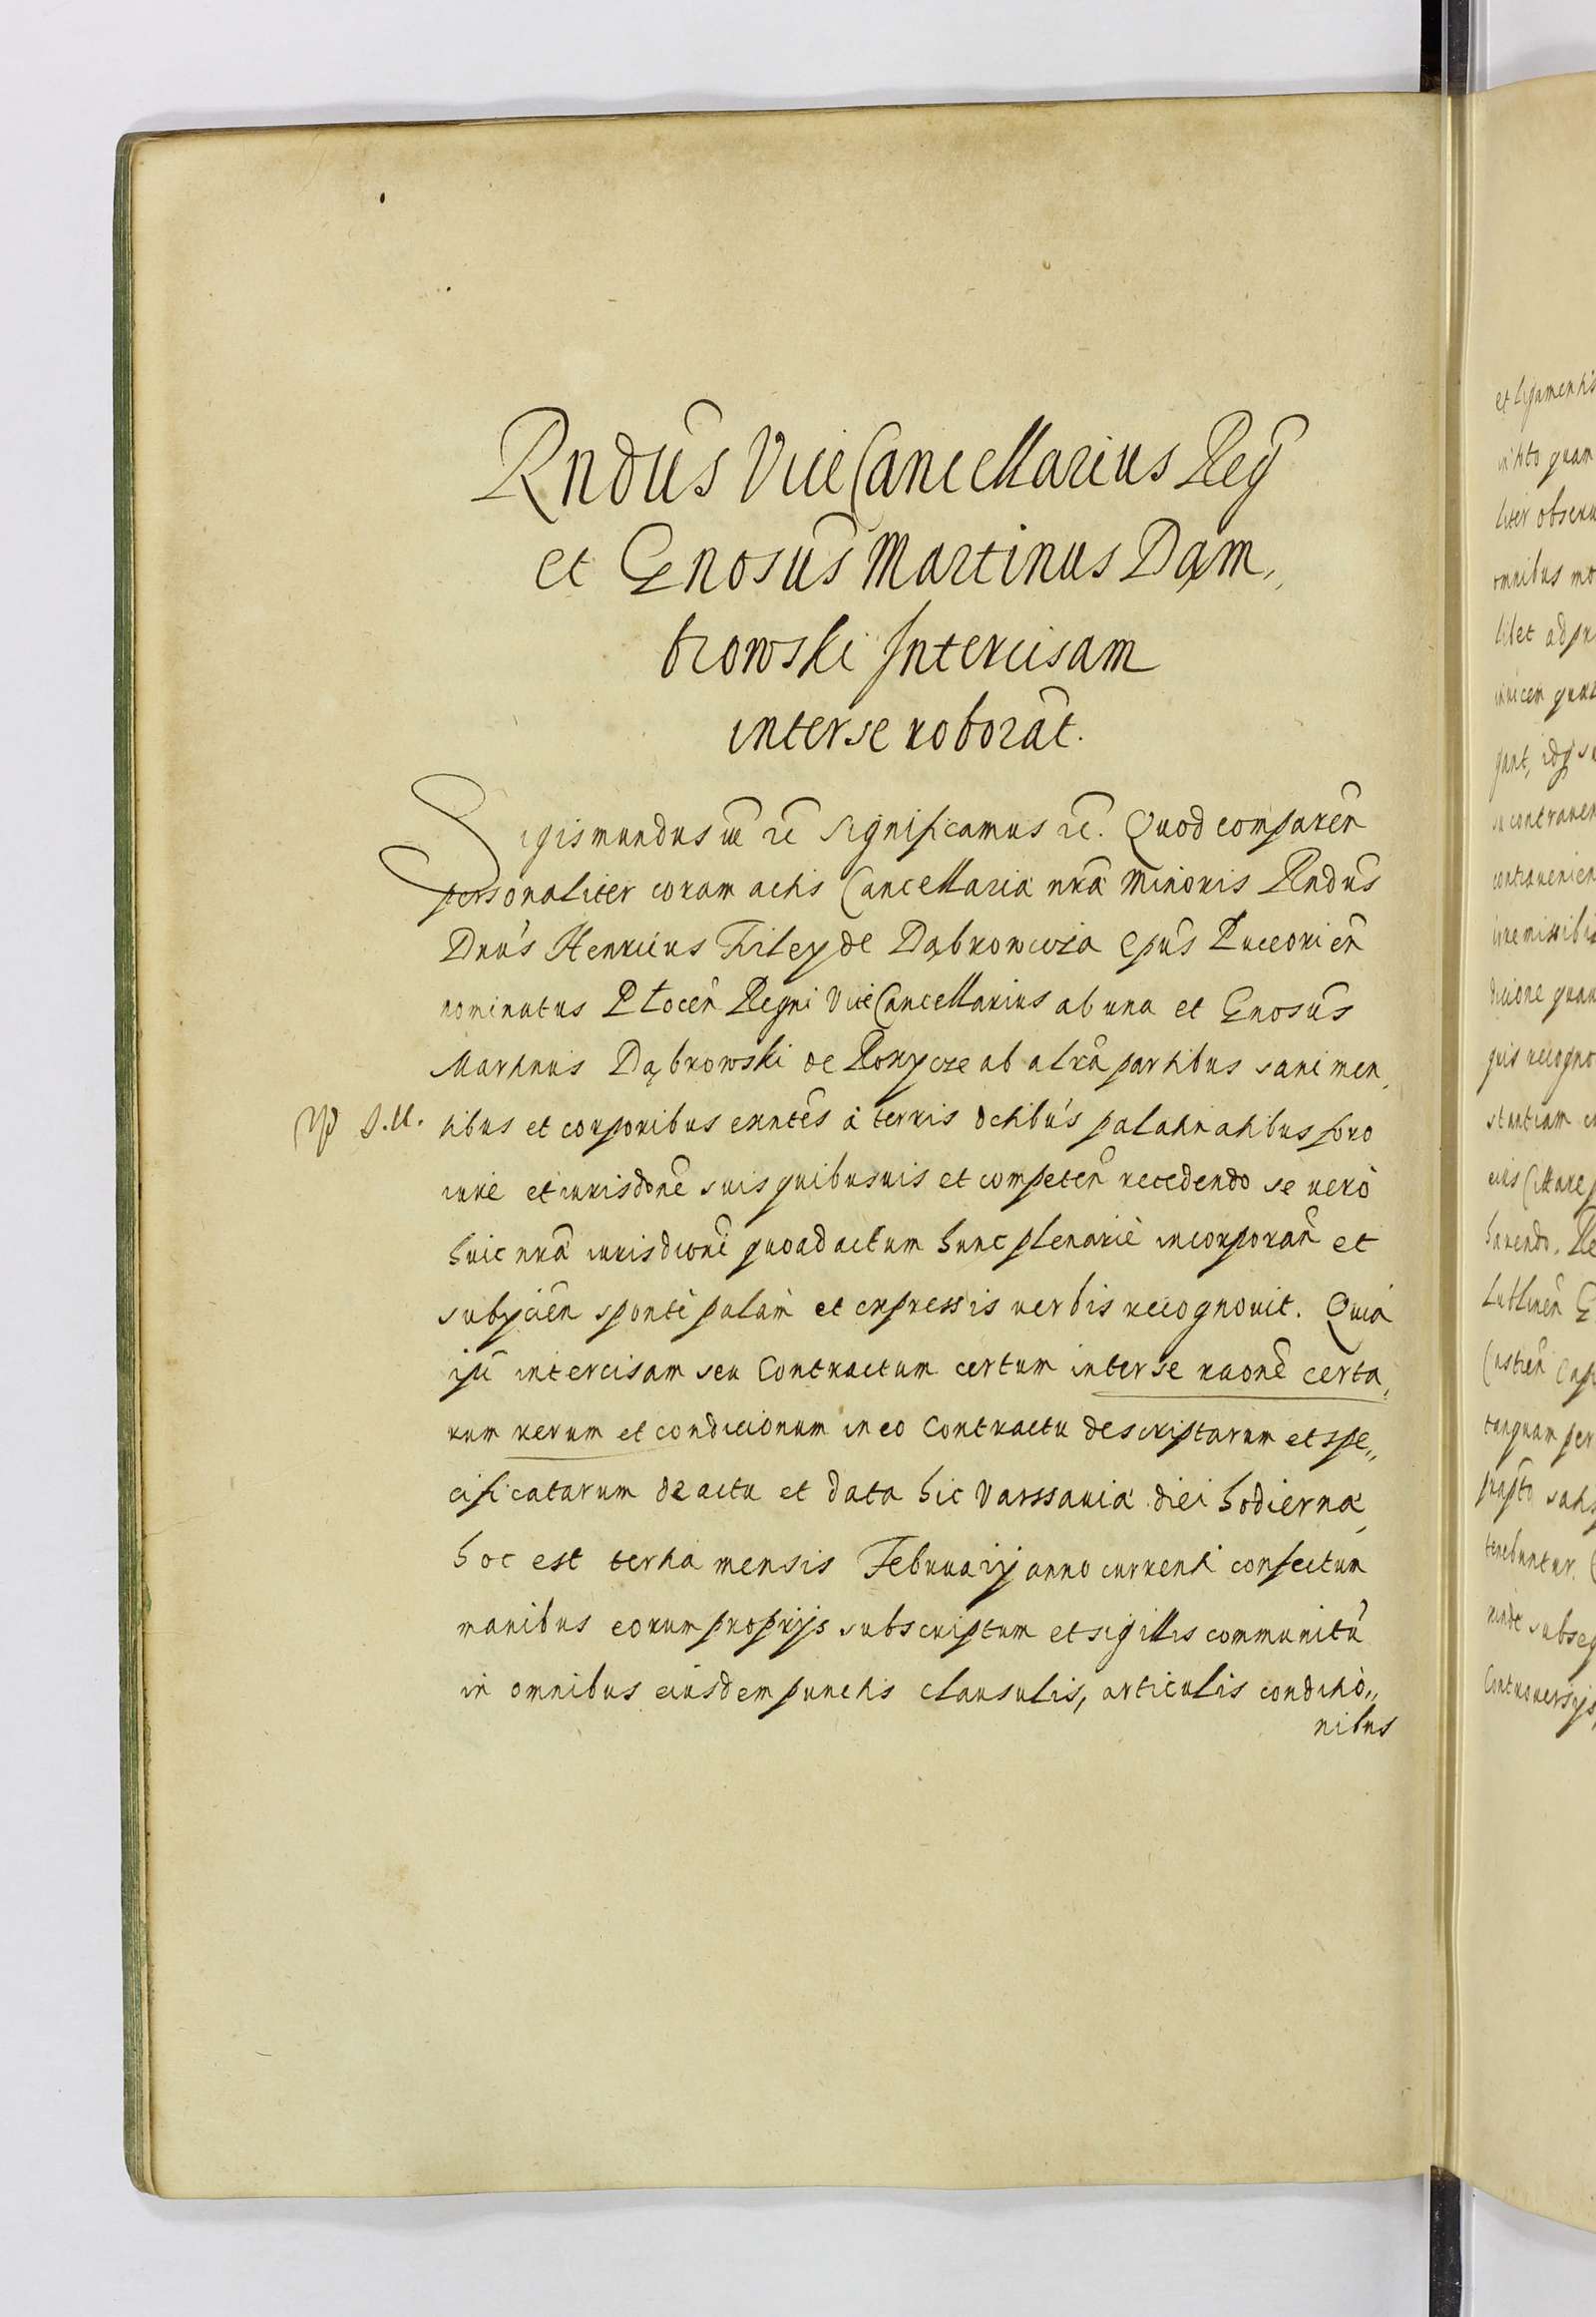 Rndus ViceCancellarius Reg
et Gnosus Martinus Dąm,
browski Intercisam
inter se roborāt.
Sigismundus etc etc significamus etc. Quod comparen
personaliter coram actis Cancellariæ nræ Minoris Rndus
Dnus Henricus Firley de Dąbrowicza Epus Luceorien
nominatus Plocen Regni ViceCancellarius ab una et Gnosus
Martinus Dąbrowski de ab altra partibus sani men,
tibus et corporibus exntes à terris dctibus palatinatibus foro
iure et iurisdone suis quibusuis et competen recedendo se verò
huic nræ iurisdicõni quoad actum hunc plenariè incorporan et
subijcien spontè palàm et expressis verbis recognouit. Quia
ipi intercisam seu Contractum certum inter se raone certa,
rum rerum et condicionum in eo Contractu descriptarum et spe,,
cificatarum de actu et data hic Varssauiæ diei hodiernæ,
hoc est tertia mensis Februarij anno currenti confectum
manibus eorum proprijs subscriptum et sigillis communitū
in omnibus eiusdem punctis clausulis, articulis conditio,,
nibus
et ligamentis
liter obseru
omnibus mo
libet ad pr
inuicem
gant, idq su
contrauenien
irremissibi
dicione quau
quis recogno
stantiam
eius Cittare
harendo. Re
Lublinen G
Castren Cap
tanquam per
tenebuntur.
subseq
Controuersijs,